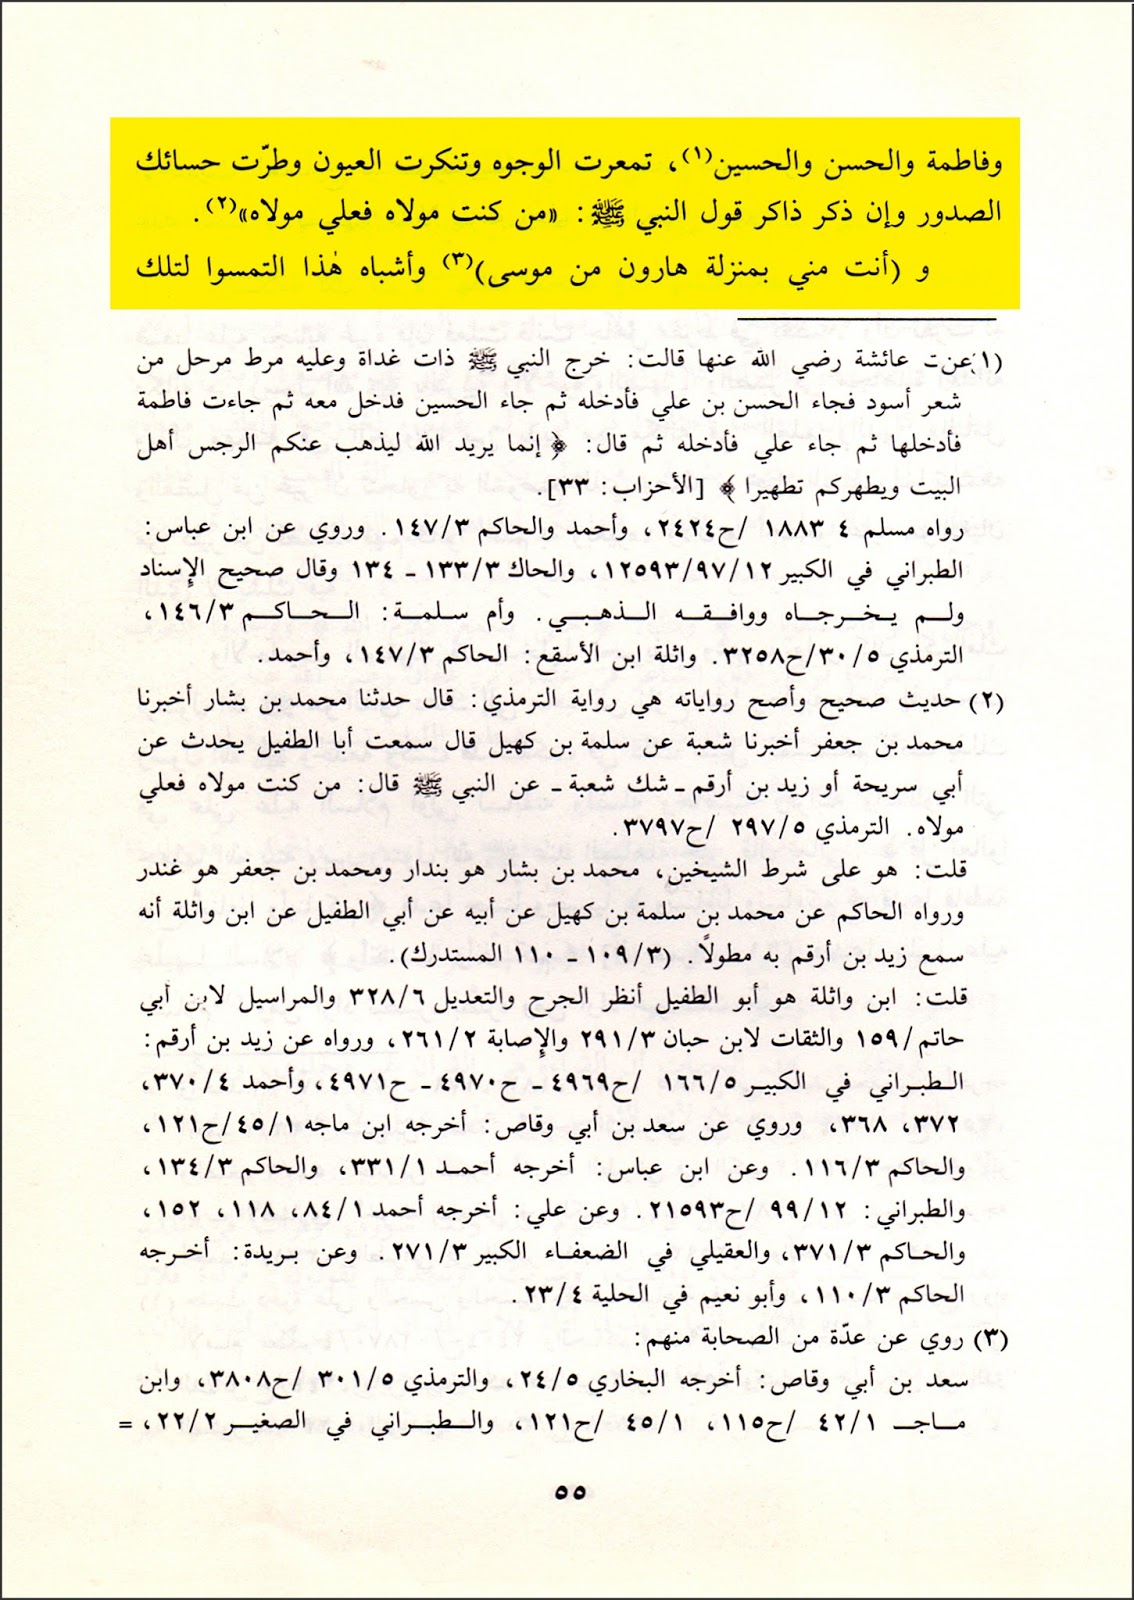 وفاطمة والحسن والحسين(١)، تمعرت الوجوه وتنكرت العيون وطرّت حسائك
الصدور وإن ذكر ذاكر قول النبي ﷺ: «من كنت مولاه فعلي مولاه»(٢).
و (أنت مني بمنزلة هارون من موسى)(٣) وأشباه هٰذا التمسوا لتلك
(١) عن عائشة رضي الله عنها قالت: خرج النبي ﷺ ذات غداة وعليه مرط مرحل من
شعر أسود فجاء الحسن بن علي فأدخله ثم جاء الحسين فدخل معه ثم جاءت فاطمة
فأدخلها ثم جاء علي فأدخله ثم قال: ﴿ إنما يريد الله ليذهب عنكم الرجس أهل
البيت ويطهركم تطهيرا ﴾ [الأحزاب: ٣٣].
رواه مسلم ٤ ١٨٨٣ /ح٢٤٢٤، وأحمد والحاكم ١٤٧/٣. وروي عن ابن عباس:
الطبراني في الكبير ١٢٥٩٣/٩٧/١٢، والحاك ١٣٣/٣ ـ ١٣٤ وقال صحيح الإسناد
ولم يخرجاه ووافقه الذهبي. وأم سلمة: الحاكم ١٤٦/٣،
الترمذي ٣٠/٥/ح٣٢٥٨. واثلة ابن الأسقع: الحاكم ١٤٧/٣، وأحمد.
(٢) حديث صحيح وأصح رواياته هي رواية الترمذي: قال حدثنا محمد بن بشار أخبرنا
محمد بن جعفر أخبرنا شعبة عن سلمة بن كهيل قال سمعت أبا الطفيل يحدث عن
أبي سريحة أو زيد بن أرقم ـ شك شعبة ـ عن النبي ﷺ قال: من كنت مولاه فعلي
مولاه. الترمذي ٢٩٧/٥ /ح٣٧٩٧.
قلت: هو على شرط الشيخين، محمد بن بشار هو بندار ومحمد بن جعفر هو غندر
ورواه الحاكم عن محمد بن سلمة بن كهيل عن أبيه عن أبي الطفيل عن ابن واثلة أنه
سمع زيد بن أرقم به مطولاً. (١٠٩/٣ ـ ١١٠ المستدرك).
قلت: ابن واثلة هو أبو الطفيل أنظر الجرح والتعديل ٣٢٨/٦ والمراسيل لابن أبي
حاتم/١٥٩ والثقات لابن حبان ٢٩١/٣ والإصابة ٢٦١/٢، ورواه عن زيد بن أرقم:
الطبراني في الكبير ١٦٦/٥ /ح٤٩٦٩ ـ ح٤٩٧٠ ـ ح٤٩٧١، وأحمد ٣٧٠/٤،
٣٧٢، ٣٦٨، وروي عن سعد بن أبي وقاص: أخرجه ابن ماجه ٤٥/١/ح١٢١،
والحاكم ١١٦/٣. وعن ابن عباس: أخرجه أحمد ٣٣١/١، والحاكم ١٣٤/٣،
والطبراني: ٩٩/١٢ /ح٢١٥٩٣. وعن علي: أخرجه أحمد ٨٤/١، ١١٨، ١٥٢،
والحاكم ٣٧١/٣، والعقيلي في الضعفاء الكبير ٢٧١/٣. وعن بريدة: أخرجه
الحاكم ١١٠/٣، وأبو نعيم في الحلية ٢٣/٤.
(٣) روي عن عدّة من الصحابة منهم:
سعد بن أبي وقاص: أخرجه البخاري ٢٤/٥، والترمذي ٣٠١/٥ /ح٣٨٠٨، وابن
ماجـ ٤٢/١ /ح١١٥، ٤٥/١ /ح١٢١، والطبراني في الصغير ٢٢/٢، =
٥٥